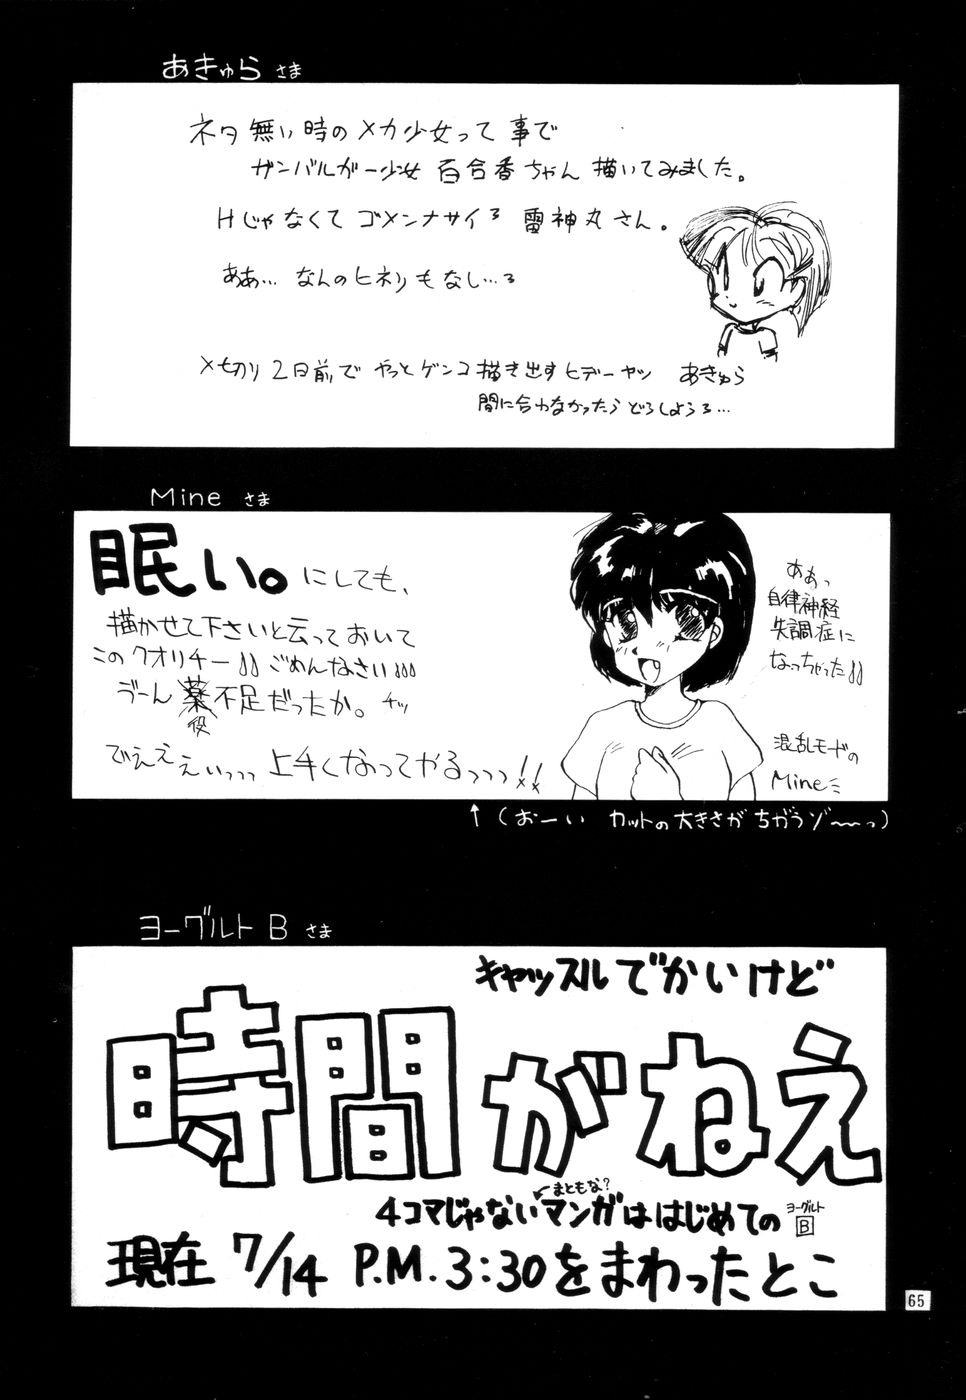 あきゅら さま
ネタ無い時のメカ少女って事で
ザンバルガー少女 百合香ちゃん 描いてみました。
Hじゃなくて ゴメンナサイろ 雷神丸さん。
ああ… なんのヒネリもなし…ろ
〆切り 2日前で やっとゲンコ描き出すヒデーヤツ あきゅら
間に合わなかったらどうしようろ…
Mine さま
眠い。にしても、
描かせて下さいと云っておいて
このクオリチー!! ごめんなさい!!!
ゔーん 薬不足だったか。 チッ
役
でええぇいっっっ 上手くなってやるっっっ!!
ああっ
自律神経
失調症に
なっちゃった!!
混乱モードの
Mine
↑ (おーい カットの大きさがちがうゾ〜〜っ)
ヨーグルト B さま
キャッスルでかいけど
時間がねえ
まともな?
4コマじゃないマンガははじめての ヨーグルト B
現在 7/14 P.M. 3:30をまわったとこ
65